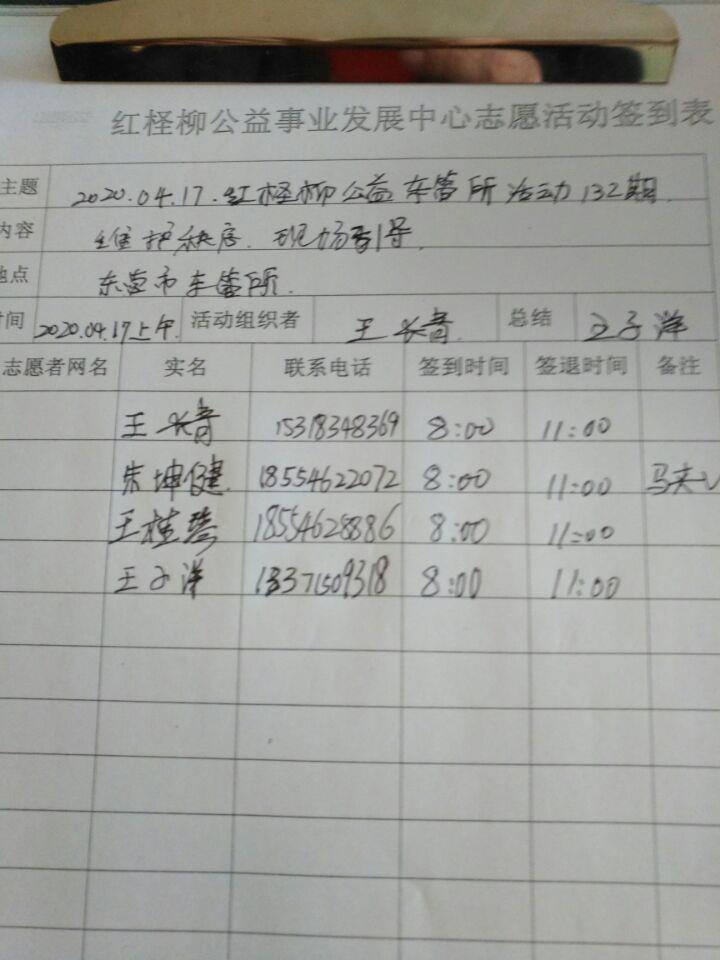 红柽柳公益事业发展中心志愿活动签到表
主题 2020.04.17.红柽柳公益车管所活动132期.
内容 维护秩序.现场引导.
地点 东营市车管所.
时间 2020.04.17上午. 活动组织者 王长青. 总结 王子洋
志愿者网名 实名 联系电话 签到时间 签退时间 备注
王长青 15318348369 8:00 11:00
朱坤健. 18554622072 8:00 11:00
王桂琴 18554628886 8:00 11:00
王子洋 13371509318 8:00 11:00